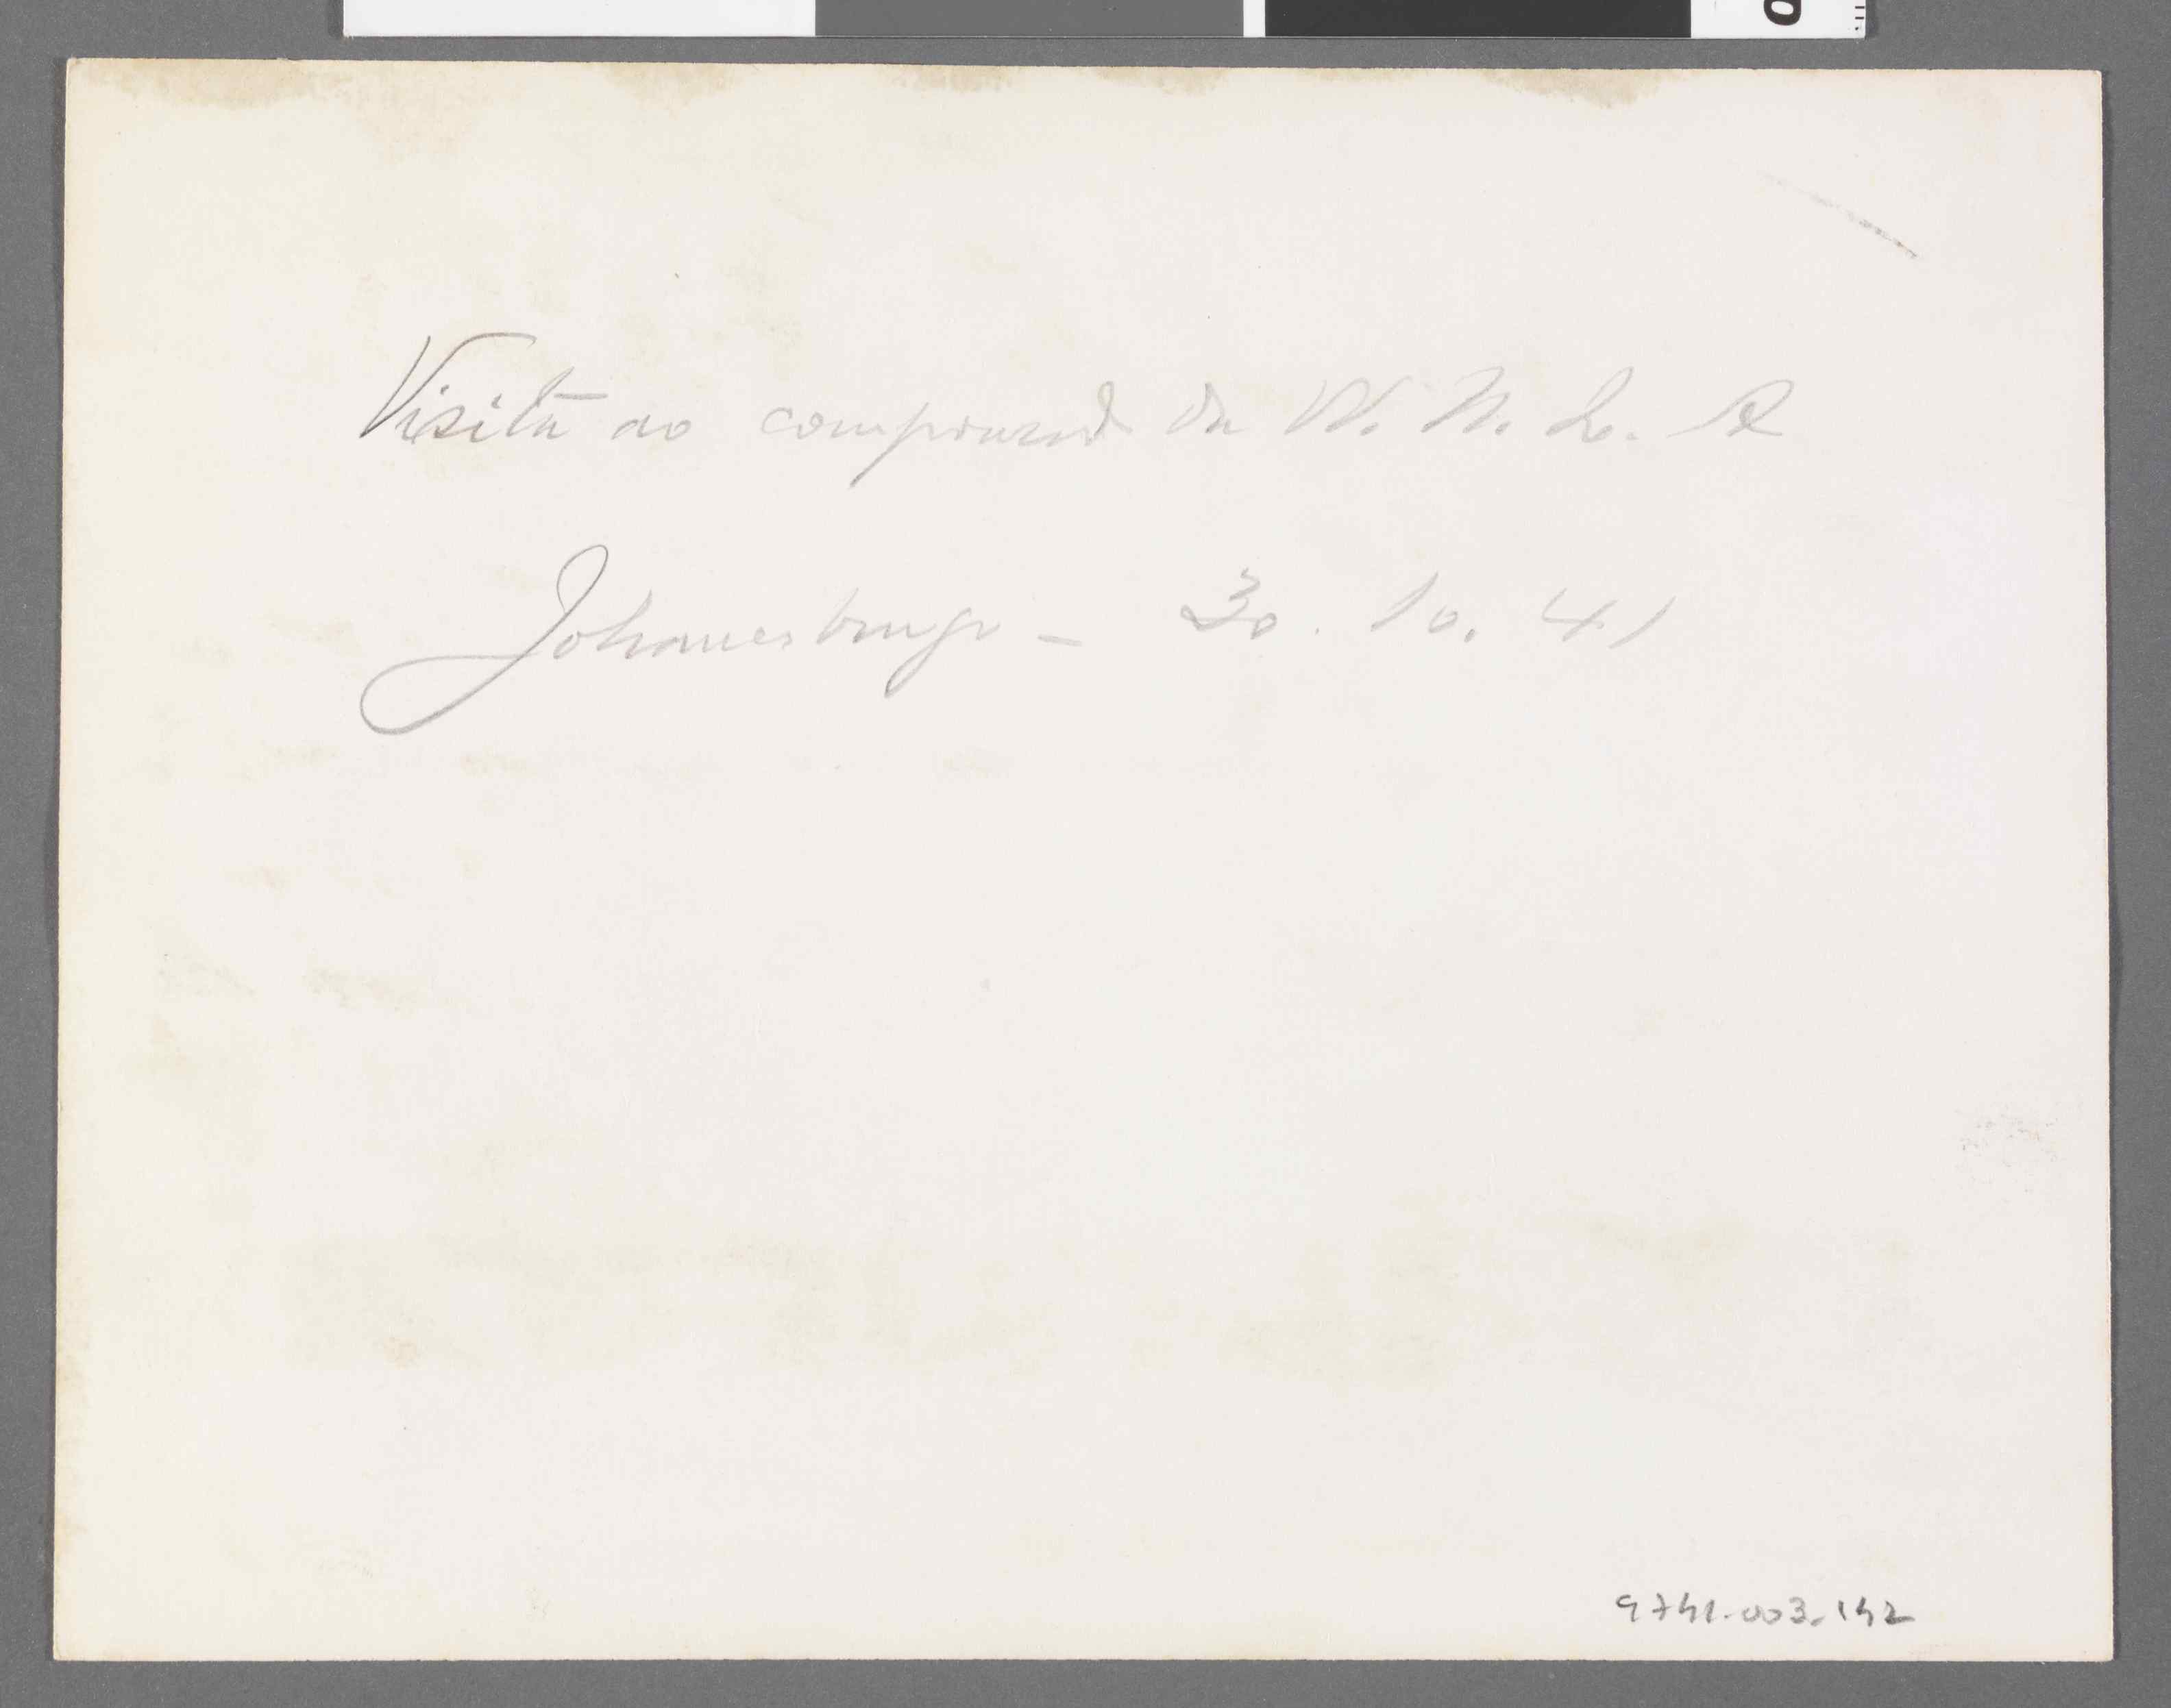 Visita ao compound da W. N. L. A
Johannesburgo - 30. 10. 41
9741.003.142